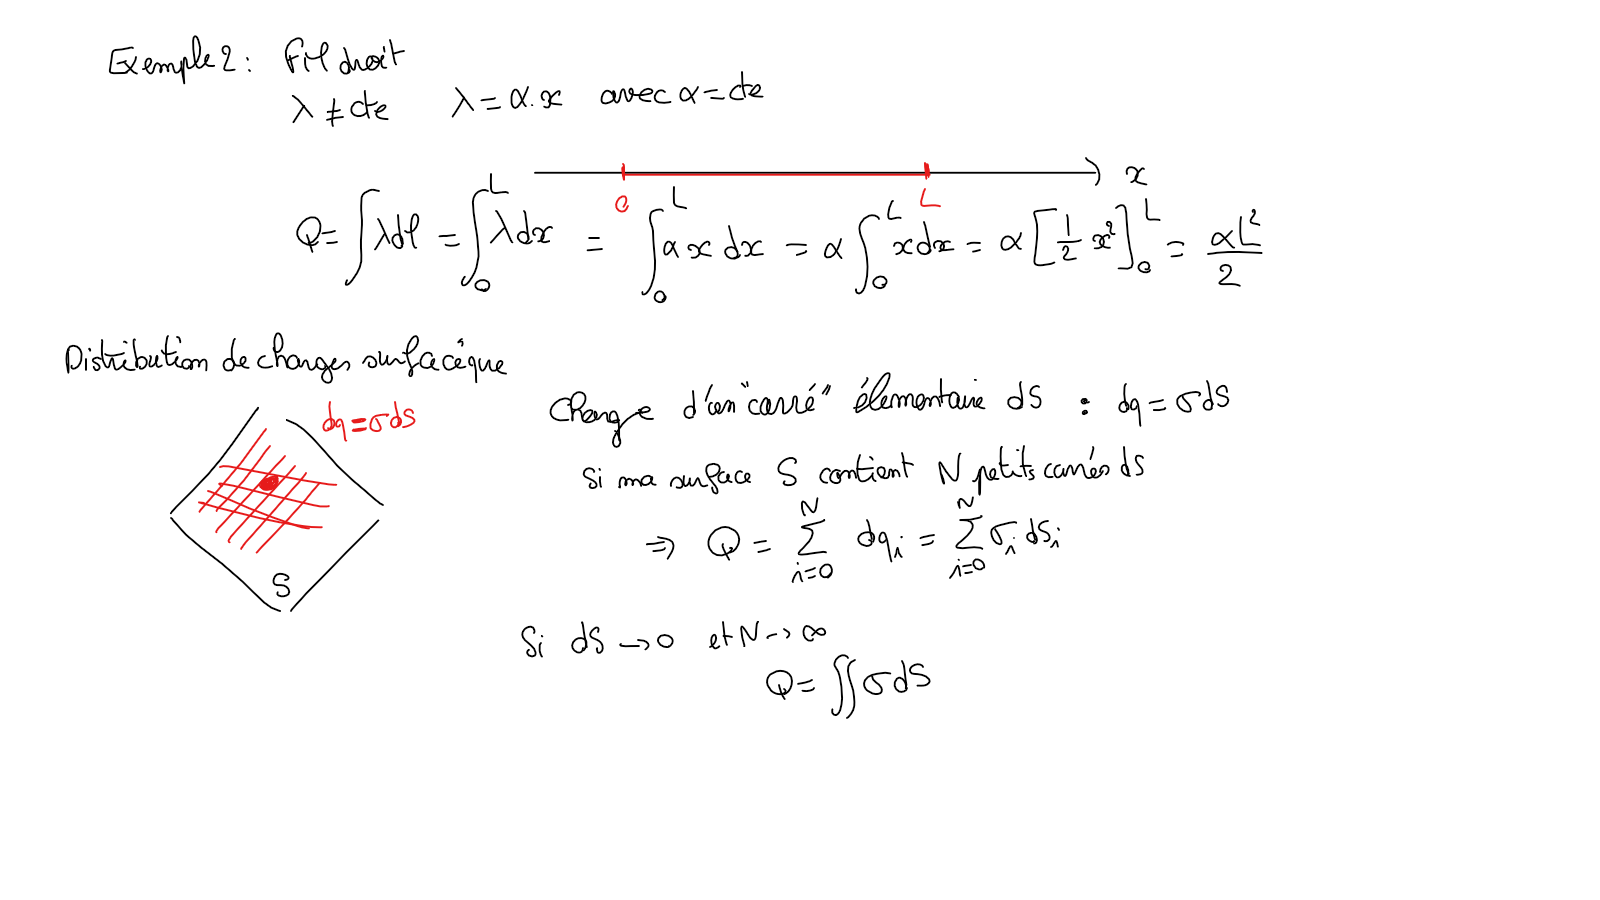 Exemple 2 : Fil droit
λ ≠ cte λ = α.x avec α = cte
x
0 L
Q = ∫ λdl = ∫₀ᴸ λdx = ∫₀ᴸ αx dx = α ∫₀ᴸ xdx = α [½ x²]₀ᴸ = αL²/2
Distribution de charges surfacique
dq = σdS
S
Charge d'un "carré" élementaire dS : dq = σdS
Si ma surface S contient N petits carrés dS
⇒ Q = Σᵢ₌₀ᴺ dqᵢ = Σᵢ₌₀ᴺ σᵢ dSᵢ
Si dS → 0 et N → ∞
Q = ∬ σdS